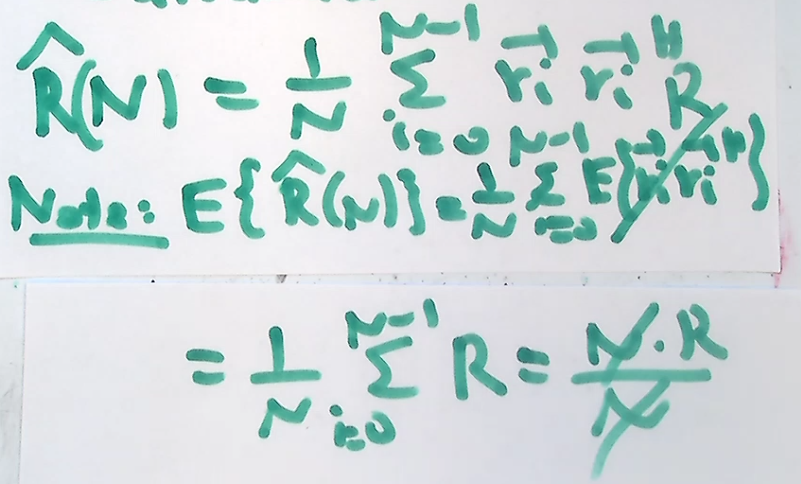 R̂(N) = 1/N ∑_{i=0}^{N-1} r⃗_i r⃗_i^H
Note: E{R̂(N)} = 1/N ∑_{i=0}^{N-1} E{r⃗_i r⃗_i^H} R
= 1/N ∑_{i=0}^{N-1} R = N·R/N